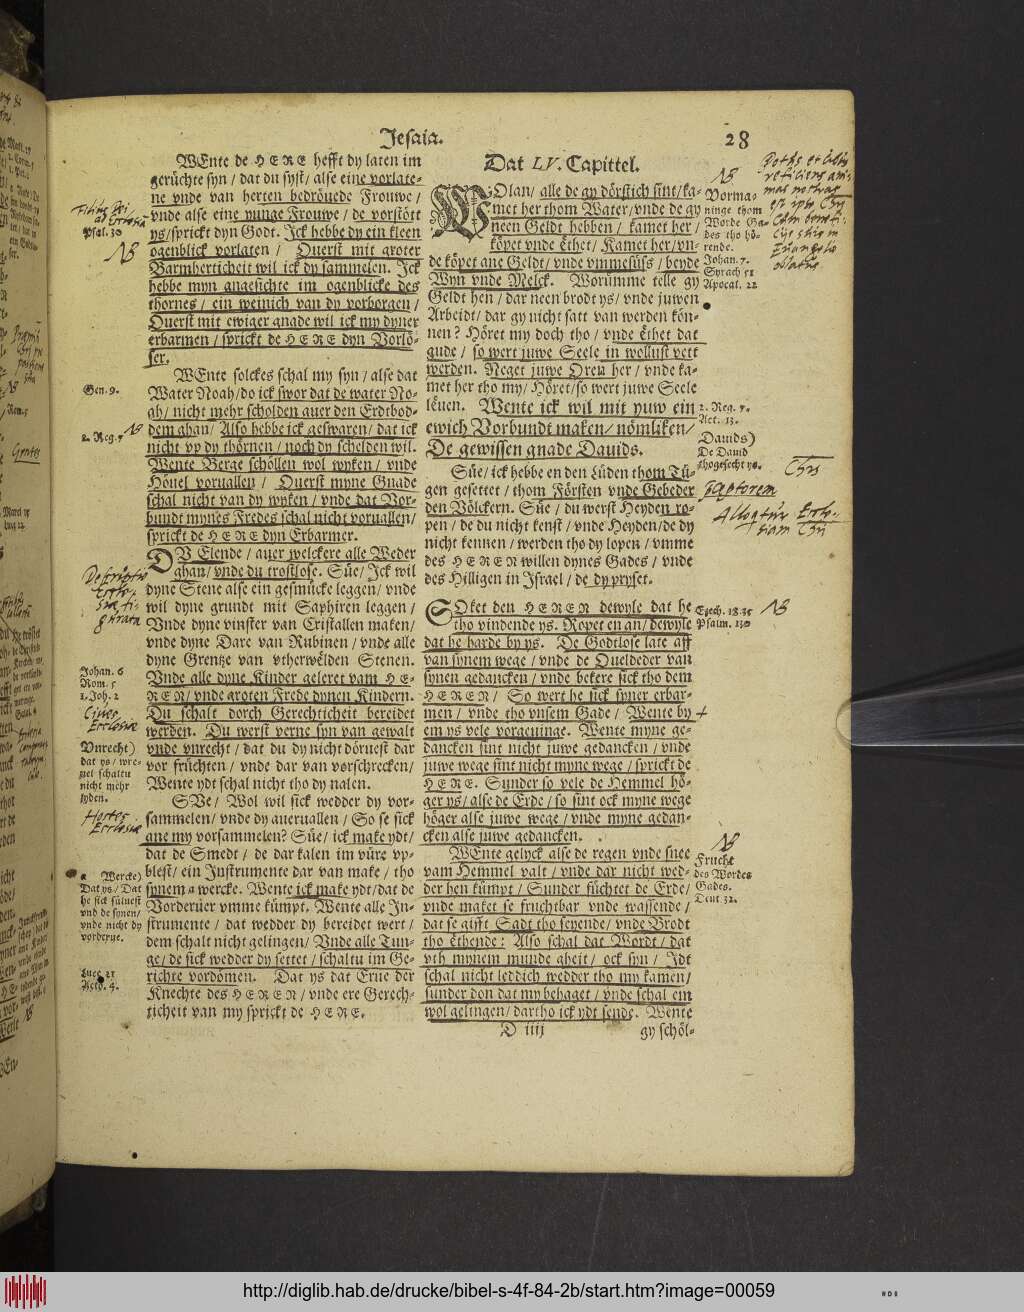 Jesaia.
28
WEnte de HERE hefft dy laten im
gerüchte syn / dat du syst / alse eine vorlate-
ne vnde van herten bedröuede Frouwe /
vnde alse eine yunge Frouwe / de vorstött
ys / sprickt dyn Godt. Ick hebbe dy ein kleen
ogenblick vorlaten / Ouerst mit groter
Barmherticheit wil ick dy sammelen. Ick
hebbe myn angesichte im ogenblicke des
thornes / ein weinich van dy vorborgen /
Ouerst mit ewiger gnade wil ick my dyner
erbarmen / sprickt de HERE dyn Vorlö-
ser.
WEnte solckes schal my syn / alse dat
Water Noah / do ick swor dat de water No-
ah / nicht mehr scholden auer den Erdtbod-
dem ghan / Also hebbe ick geswaren / dat ick
nicht vp dy thörnen / noch dy schelden wil.
Wente Berge schöllen wol wyken / vnde
Höuel voruallen / Ouerst myne Gnade
schal nicht van dy wyken / vnde dat Vor-
bundt mynes Fredes schal nicht voruallen /
sprickt de HERE dyn Erbarmer.
DV Elende / auer welckere alle Weder
ghan / vnde du trostlose. Süe / Ick wil
dyne Stene alse ein gesmücke leggen / vnde
wil dyne grundt mit Saphiren leggen /
Vnde dyne vinster van Cristallen maken /
vnde dyne Dare van Rubinen / vnde alle
dyne Grentze van vtherwelden Stenen.
Vnde alle dyne Kinder geleret vam HE-
REN / vnde groten Frede dynen Kindern.
Du schalt dorch Gerechticheit bereidet
werden. Du werst verne syn van gewalt
vnde vnrecht / dat du dy nicht döruest dar
vor früchten / vnde dar van vorschrecken /
Wente ydt schal nicht tho dy nalen.
SVe / Wol wil sick wedder dy vor-
sammelen / vnde dy aueruallen / So se sick
ane my vorsammelen? Süe / ick make ydt /
dat de Smedt / de dar kalen im vüre vp-
blest / ein Instrumente dar van make / tho
synem a wercke. Wente ick make ydt / dat de
Vorderüer vmme kümpt. Wente alle In-
strumente / dat wedder dy bereidet wert /
dem schalt nicht gelingen / Vnde alle Tun-
ge / de sick wedder dy settet / schaltu im Ge-
richte vordömen. Dat ys dat Erue der
Knechte des HEREN / vnde ere Gerech-
ticheit van my sprickt de HERE.
Psal. 30
NB
Gen. 9.
2. Reg. 7
NB
Johan. 6
Rom. 5
1. Joh. 2
Ciues
Ecclesiæ
Vnrecht)
dat ys / wre-
uel schaltu
nicht mehr
lyden.
Hostes
Ecclesiæ
a Wercke)
Dat ys / Dat
he sick sülues
vnd de synen /
vnde nicht dy
vorderue.
Luce. 21
Acto. 4.
Dat LV. Capittel.
WOlan / alle de gy dörstich sint / ka-
met her thom Water / vnde de gy
neen Geldt hebben / kamet her /
köpet vnde ethet / Kamet her / vn-
de köpet ane Geldt / vnde vmmesüss / beyde
Wyn vnde Melck. Worümme telle gy
Geldt hen / dar neen brodt ys / vnde juwen
Arbeidt / dar gy nicht satt van werden kön-
nen? Höret my doch tho / vnde ethet dat
gude / so wert juwe Seele in wollust vett
werden. Neget juwe Oren her / vnde ka-
met her tho my / Höret / so wert juwe Seele
leuen. Wente ick wil mit yuw ein
ewich Vorbundt maken / nömliken /
De gewissen gnade Dauids.
Süe / ick hebbe en den Lüden thom Tü-
gen gesettet / thom Försten vnde Gebeder
den Völckern. Süe / du werst Heyden ro-
pen / de du nicht kenst / vnde Heyden / de dy
nicht kennen / werden tho dy lopen / vmme
des HEREN willen dynes Gades / vnde
des Hilligen in Israel / de dy pryset.
SOket den HEREN dewyle dat he
tho vindende ys. Ropet en an / dewyle
dat he harde by ys. De Godtlose late aff
van synem wege / vnde de Oueldeder van
synen gedancken / vnde bekere sick tho dem
HEREN / So wert he sick syner erbar-
men / vnde tho vnsem Gade / Wente by
em ys vele vorgeuinge. Wente myne ge-
dancken sint nicht juwe gedancken / vnde
juwe wege sint nicht myne wege / sprickt de
HERE. Sunder so vele de Hemmel hö-
ger ys / alse de Erde / so sint ock myne wege
höger alse juwe wege / vnde myne gedan-
cken alse juwe gedancken.
WEnte gelyck alse de regen vnde snee
vam Hemmel valt / vnde dar nicht wed-
der hen kümpt / Sunder füchtet de Erde /
vnde maket se fruchtbar vnde wassende /
dat se gifft Sadt tho seyende / vnde Brodt
tho ethende: Also schal dat Wordt / dat
vth mynem munde gheit / ock syn / Idt
schal nicht leddich wedder tho my kamen /
sunder don dat my behaget / vnde schal em
wol gelingen / dartho ick ydt sende. Wente
D iiij
gy schöl-
NB
Vorma-
ninge thom
Worde Ga-
des tho hö-
rende.
Johan. 7.
Syrach 51
Apocal. 22
2. Reg. 7.
Act. 13.
Dauids)
De Dauid
thogesecht ys.
Ezech. 18. 33
Psalm. 130
NB
NB
Frucht
des Wordes
Gades.
Deut 32.
http://diglib.hab.de/drucke/bibel-s-4f-84-2b/start.htm?image=00059